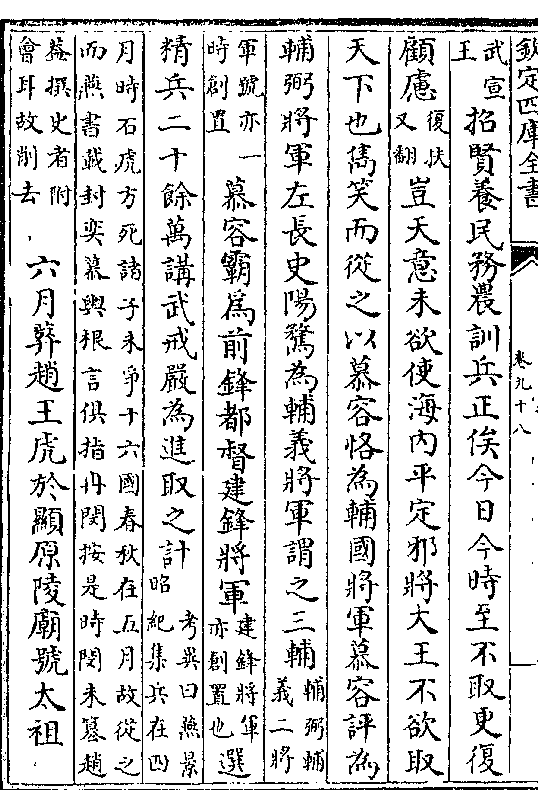 欽定四庫全書
卷九十八
武宣王招賢養民務農訓兵正俟今日今時至不取更復
顧慮復扶又翻豈天意未欲使海內平定邪將大王不欲取
天下也雋笑而從之以慕容恪為輔國將軍慕容評為
輔弼將軍左長史陽騖為輔義將軍謂之三輔輔弼輔義二將
軍號亦一時創置慕容霸為前鋒都督建鋒將軍建鋒將軍亦創置也選
精兵二十餘萬講武戒嚴為進取之計考異曰燕景昭紀集兵在四
月時石虎方死諸子未爭十六國春秋在五月故從之而燕書載封奕慕輿根言俱指冉閔按是時閔未簒趙
葢撰史者附會耳故削去六月葬趙王虎於顯原陵廟號太祖